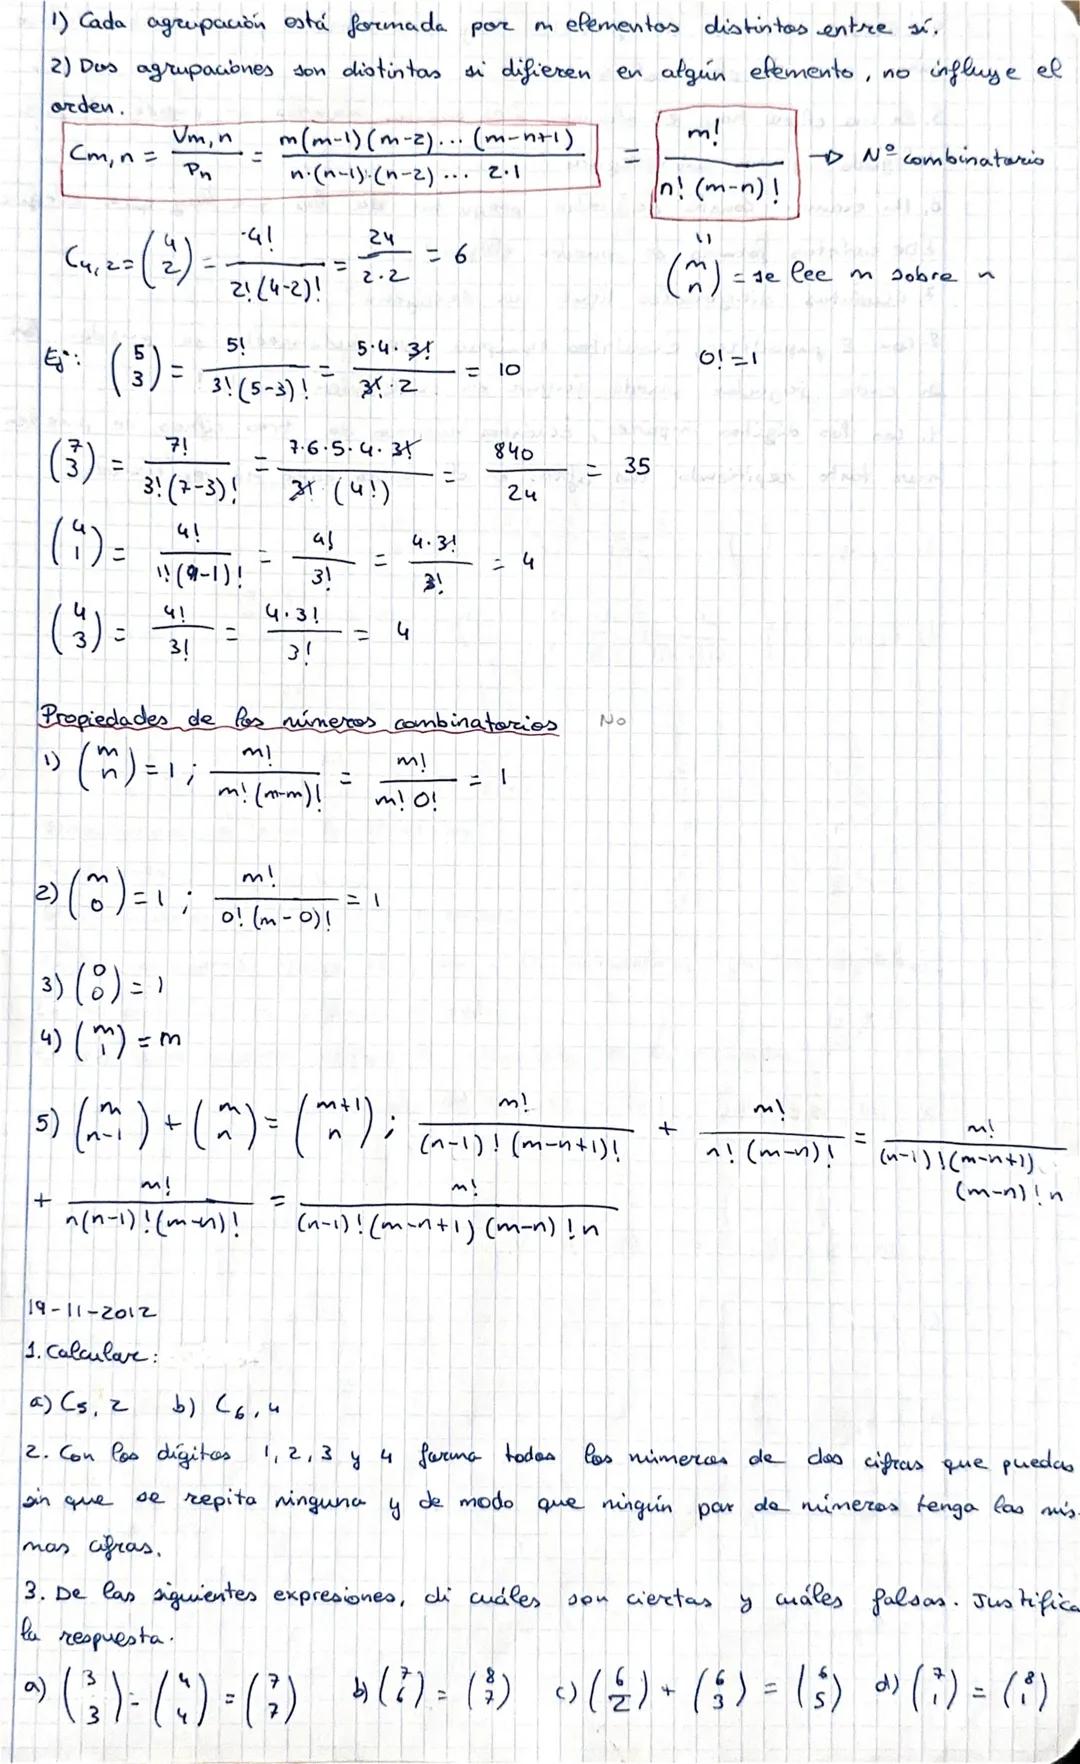 1) Cada agrupación está formada por m elementos distintos entre sí.
2) Dos agrupaciones son distintas si difieren en algún elemento, no influye el
orden.
Cm,n = Vm,n / Pn = m(m-1)(m-2)...(m-n+1) / n·(n-1)·(n-2)... 2·1 = m! / n!(m-n)! → Nº combinatorio
C4,2 = (4 2) = 4! / 2!(4-2)! = 24 / 2·2 = 6
" (m n) = se lee m sobre n
Ej: (5 3) = 5! / 3!(5-3)! = 5·4·3! / 3!·2 = 10 0! = 1
(7 3) = 7! / 3!(7-3)! = 7·6·5·4·3! / 3!(4!) = 840 / 24 = 35
(4 1) = 4! / 1!(4-1)! = 4! / 3! = 4·3! / 3! = 4
(4 3) = 4! / 3! = 4·3! / 3! = 4
Propiedades de los números combinatorios No
1) (m n) = 1 ; m! / m!(m-m)! = m! / m! 0! = 1
2) (m 0) = 1 ; m! / 0!(m-0)! = 1
3) (0 0) = 1
4) (m 1) = m
5) (m n-1) + (m n) = (m+1 n) ; m! / (n-1)!(m-n+1)! + m! / n!(m-n)! = m! / (n-1)!(m-n+1) (m-n)!n
+ m! / n(n-1)!(m-n)! = m! / (n-1)!(m-n+1)(m-n)!n
19-11-2012
1. Calcular:
a) C5,2 b) C6,4
2. Con los dígitos 1, 2, 3 y 4 forma todos los números de dos cifras que puedas
sin que se repita ninguna y de modo que ningún par de números tenga las mis-
mas cifras.
3. De las siguientes expresiones, di cuáles son ciertas y cuáles falsas. Justifica
la respuesta.
a) (3 3) = (4 4) = (7 7) b) (7 6) = (8 7) c) (6 2) + (6 3) = (6 5) d) (7 1) = (8 1)